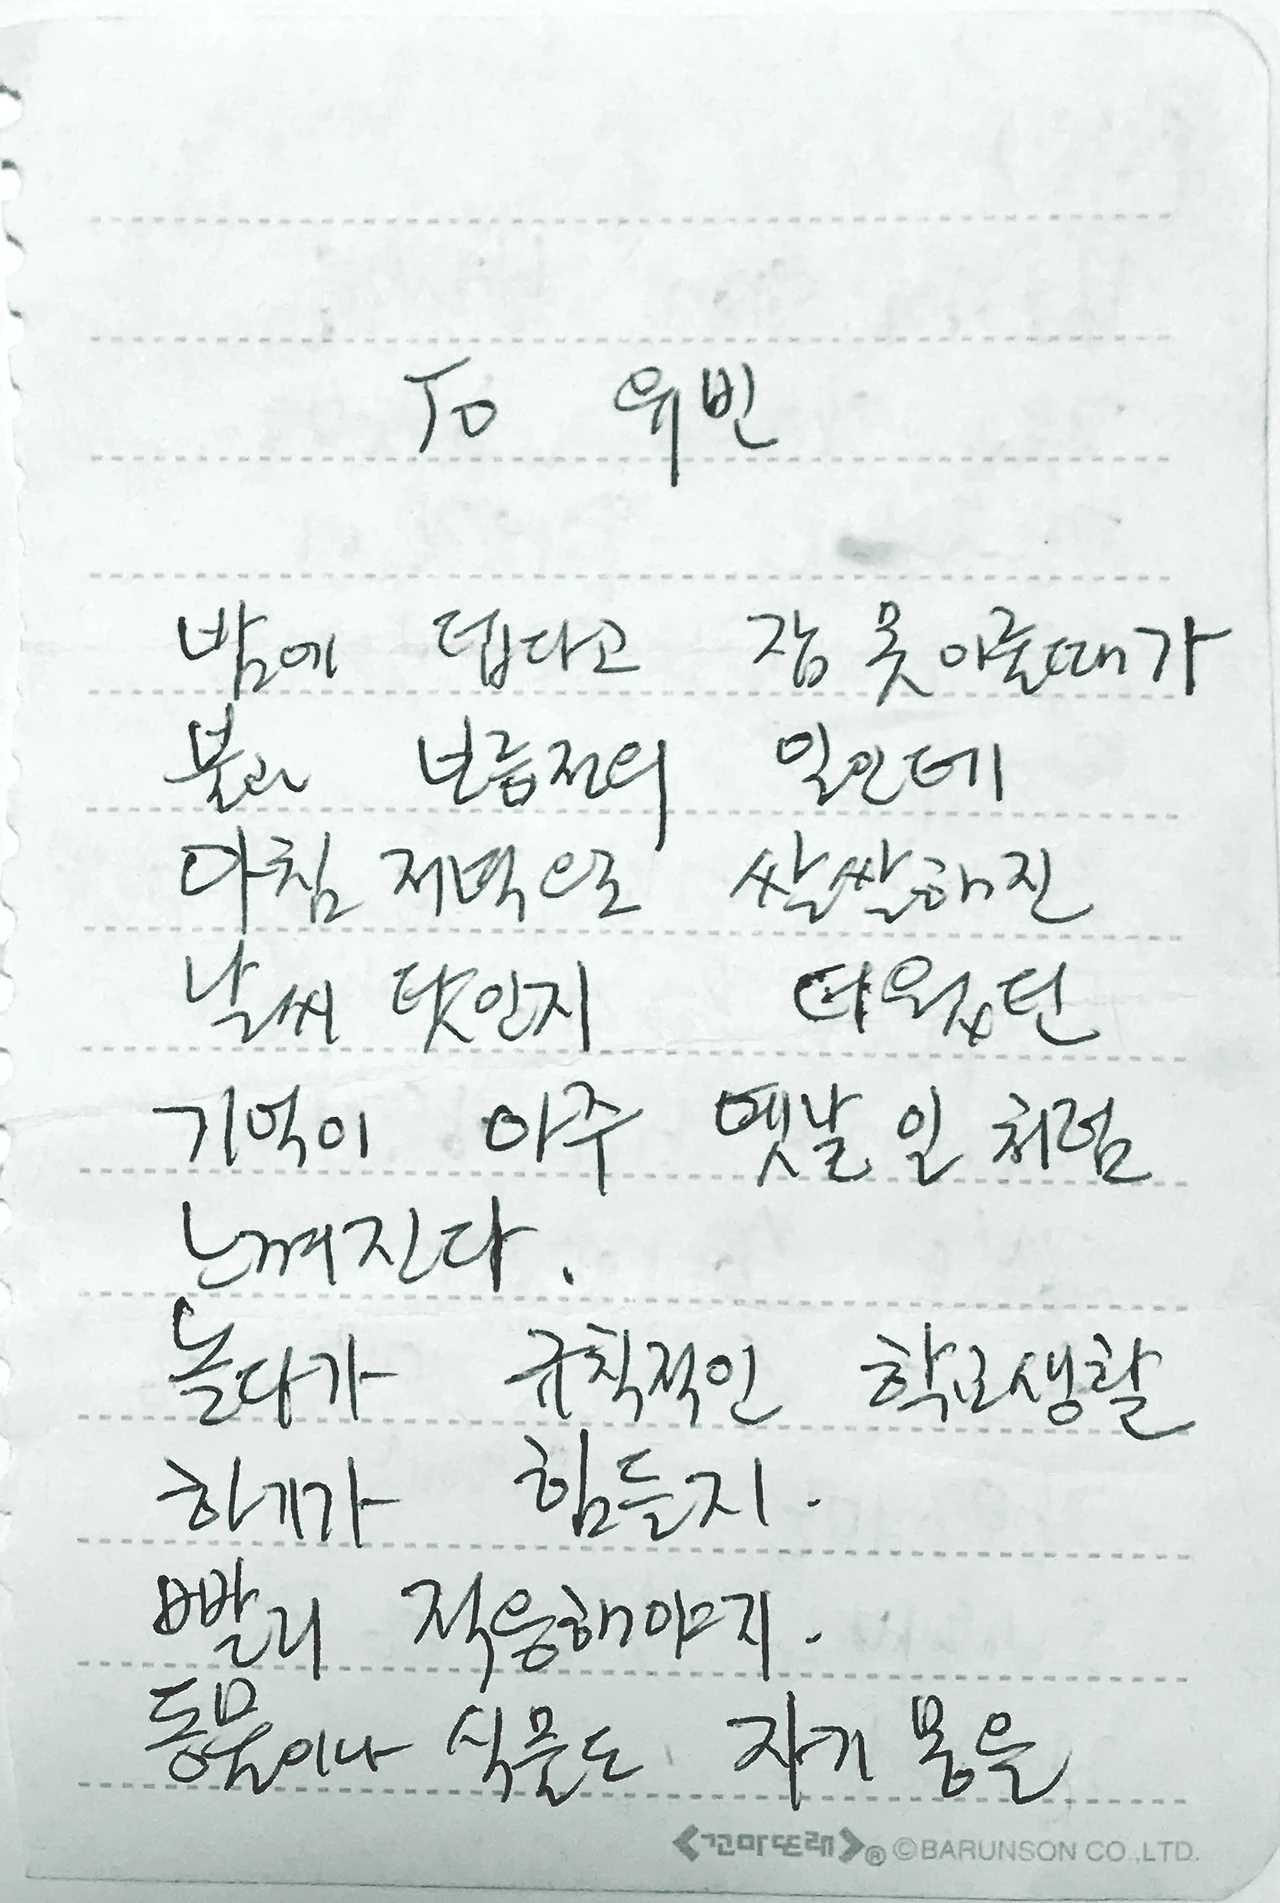 To 유빈
밤에 덥다고 잠 못이룰때가
불과 보름전의 일인데
아침 저녁으로 쌀쌀해진
날씨 탓인지 더웠던
기억이 아주 옛날 일 처럼
느껴진다.
놀다가 규칙적인 학교생활
하기가 힘들지.
빨리 적응해야지.
동물이나 식물도 자기 몸을
<꼬마또래>® ©BARUNSON CO.,LTD.